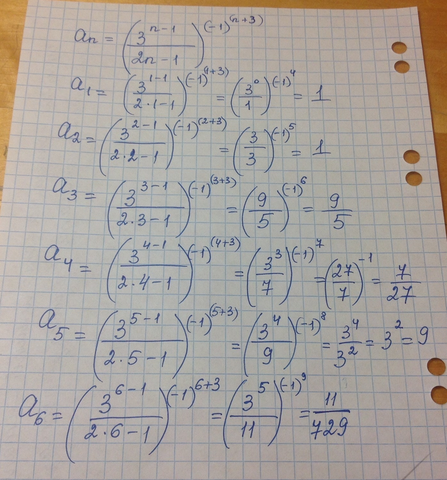 aₙ = (3^(n-1) / (2n-1))^((-1)^(n+3))
a₁ = (3^(1-1) / (2·1-1))^((-1)^(1+3)) = (3⁰ / 1)^((-1)^4) = 1
a₂ = (3^(2-1) / (2·2-1))^((-1)^(2+3)) = (3 / 3)^((-1)^5) = 1
a₃ = (3^(3-1) / (2·3-1))^((-1)^(3+3)) = (9 / 5)^((-1)^6) = 9 / 5
a₄ = (3^(4-1) / (2·4-1))^((-1)^(4+3)) = (3³ / 7)^((-1)^7) = (27 / 7)^(-1) = 7 / 27
a₅ = (3^(5-1) / (2·5-1))^((-1)^(5+3)) = (3⁴ / 9)^((-1)^8) = 3⁴ / 3² = 3² = 9
a₆ = (3^(6-1) / (2·6-1))^((-1)^(6+3)) = (3⁵ / 11)^((-1)^9) = 11 / 729